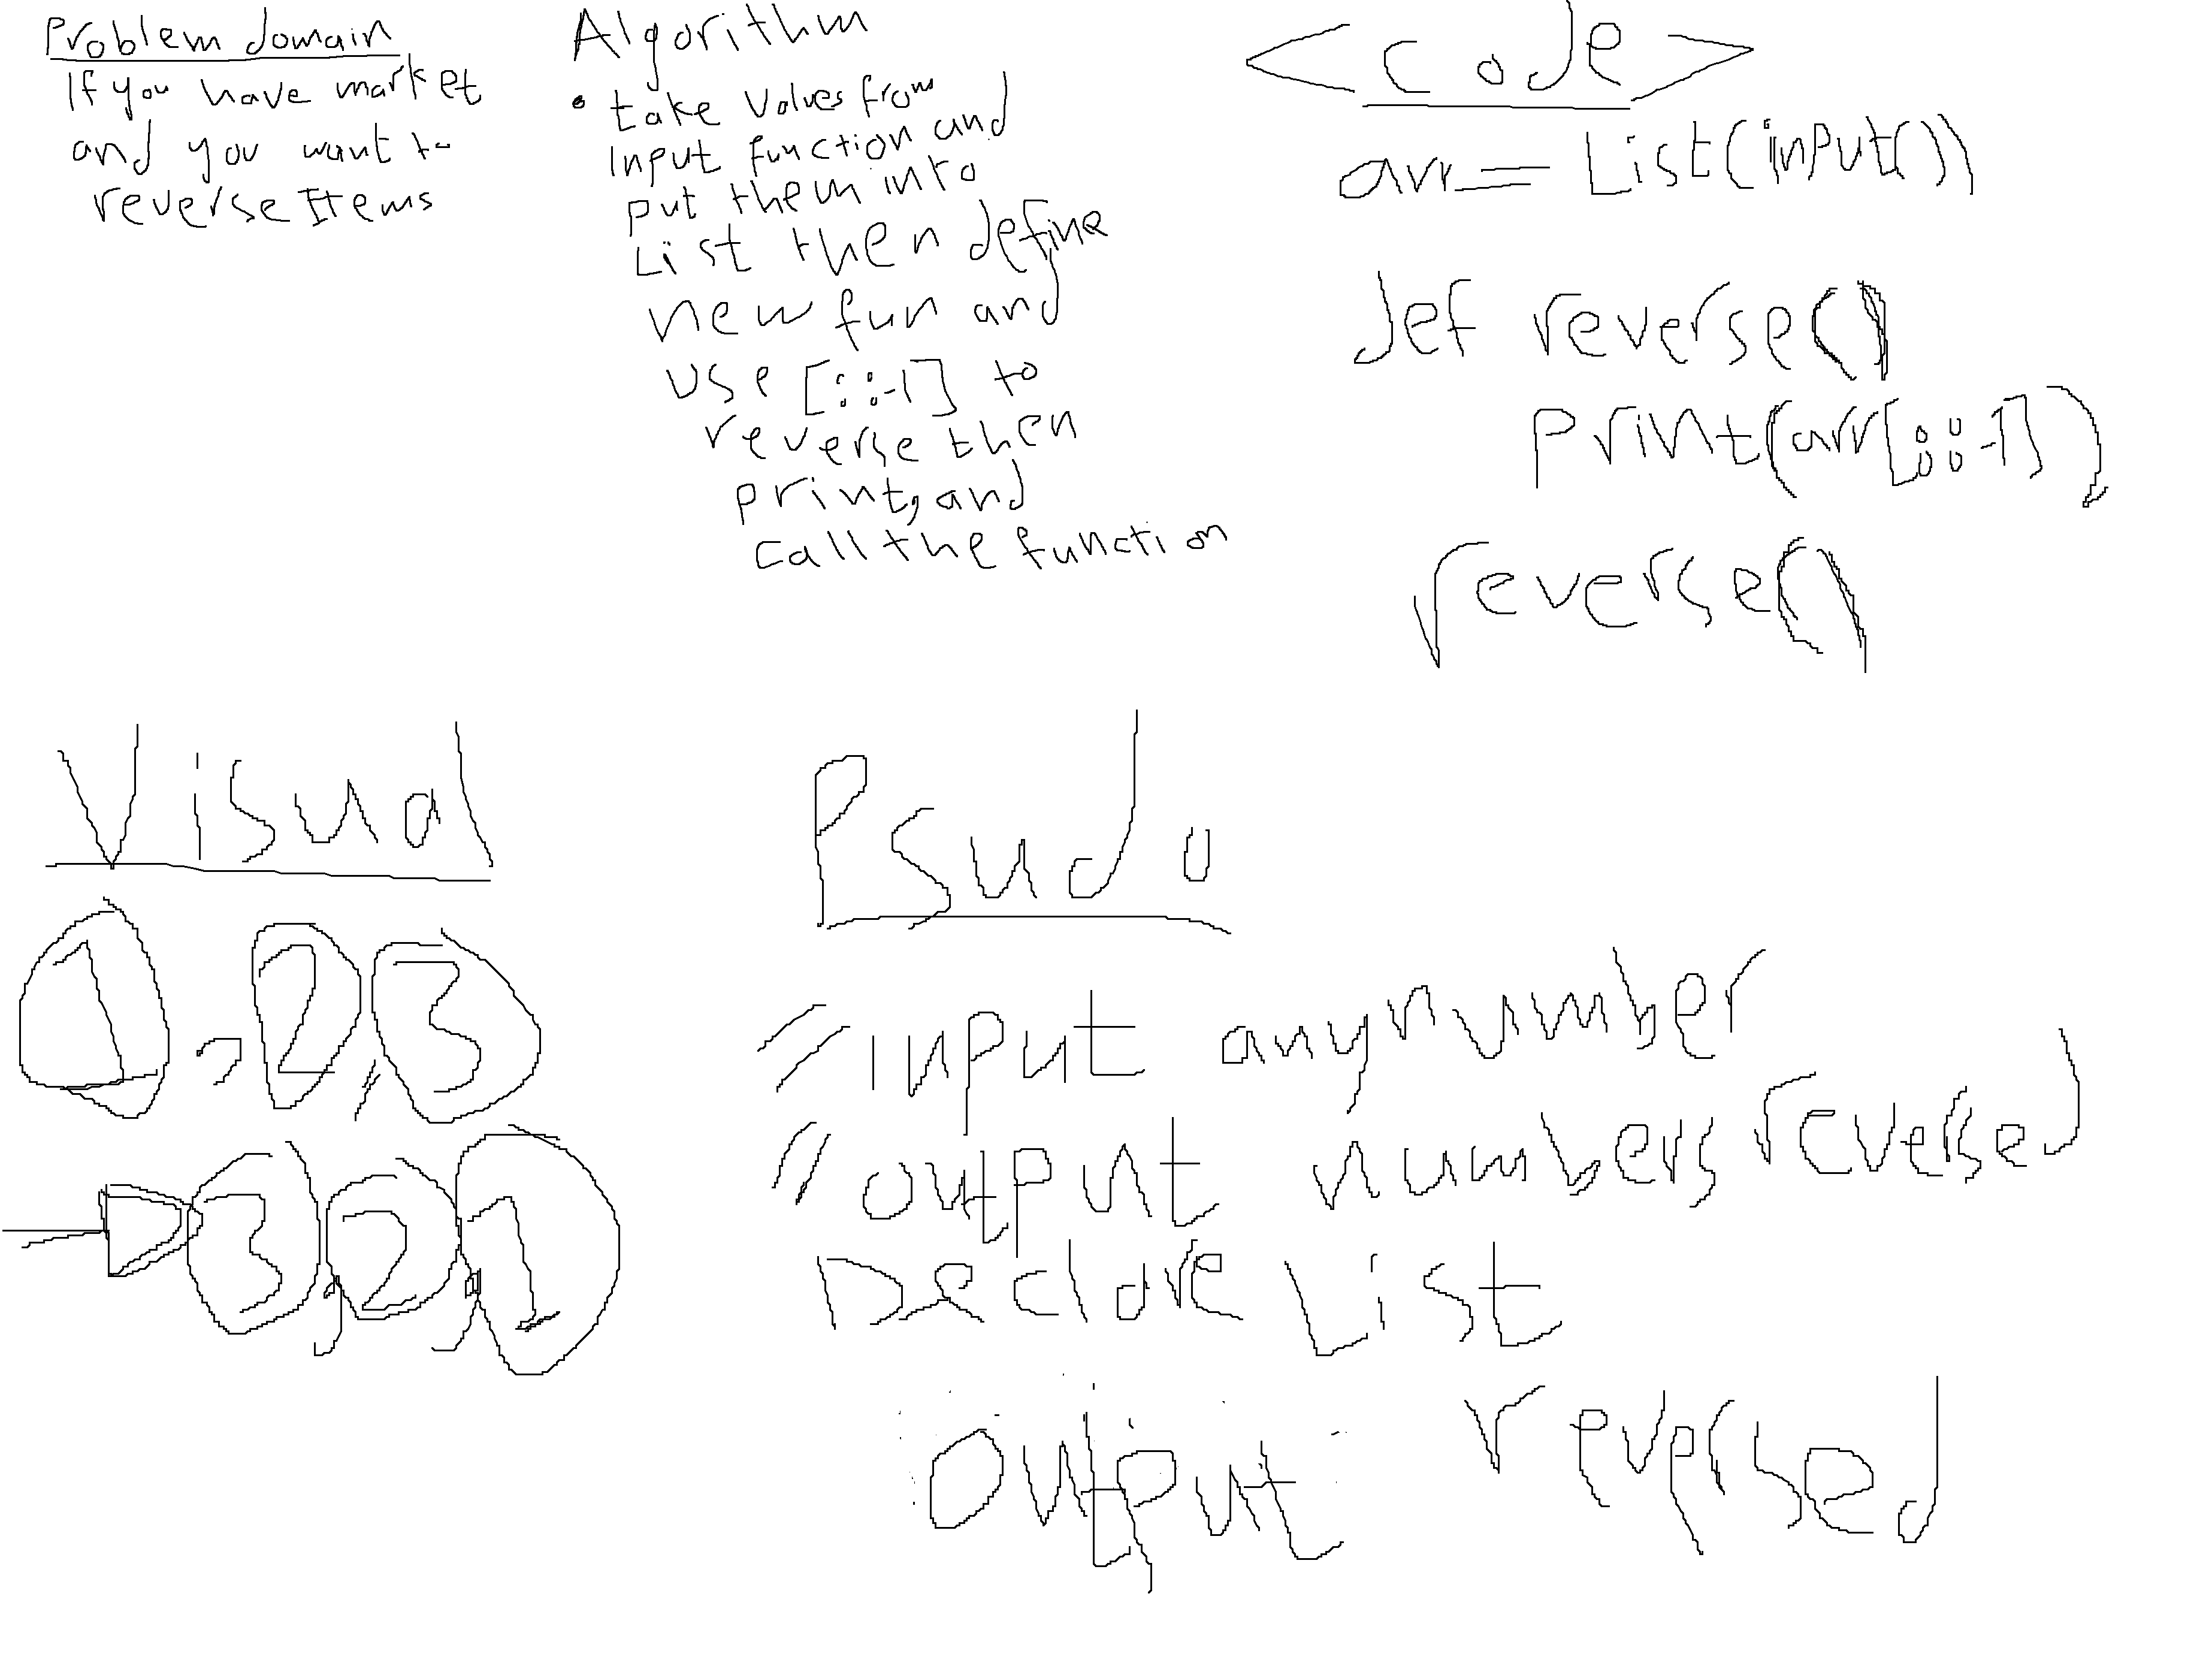 Problem domain
If you have market
and you want to
reverse Items
Algorithm
• take values from
Input function and
put them into
List then define
new fun and
use [::-1] to
reverse then
print, and
call the function
<code>
arr = List(input())
def reverse()
print(arr[::-1])
reverse()
Visual
1, 2, 3
3, 2, 1
Psudo
// input any number
// output numbers reversed
Declare List
output reversed